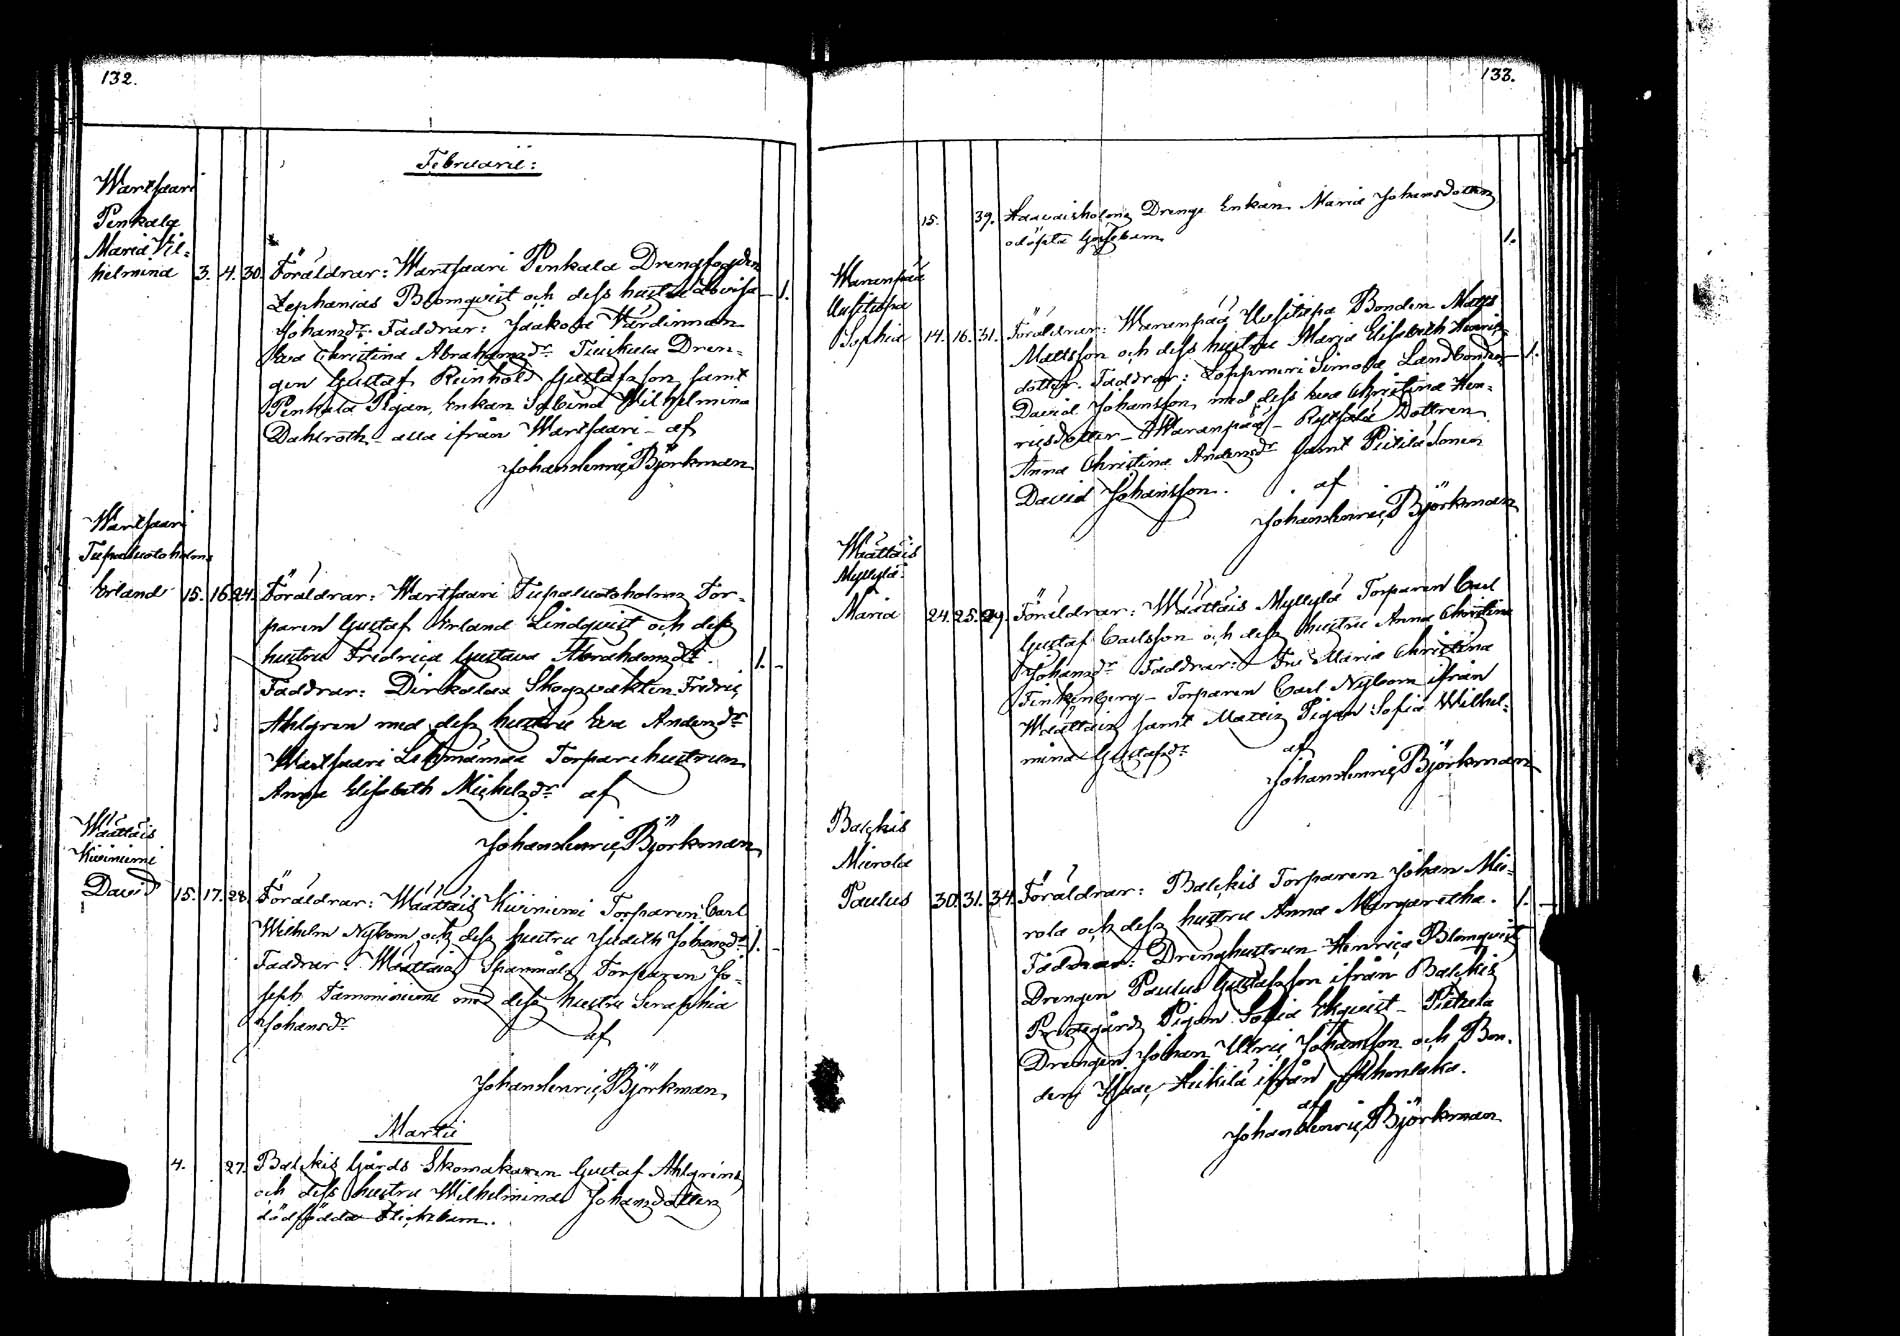 132.
Februarii:
Wartsaari
Penkala
Maria Vil=
helmina 3. 4. 30. Föräldrar: Wartsaari Penkala Drengfogden
Zephanias Blomqvist och dess hustru Lovisa 1.
Johansdr. Faddrar: Jaakola Värdinnan
Eva Christina Abrahamsdr. Dren=
gen Gustaf Reinhold Gustafsson samt
Penkala Pigan, Enkan Sabina Wilhelmina
Dahlroth alla ifrån Wartsaari - af
Johan Henric Björkman
Wartsaari
Tupaluotoholms
Erland 15. 16. 24. Föräldrar: Wartsaari Tupaluotoholms Tor=
paren Gustaf Erland Lindqvist och dess
hustru Fredrica Gustava Abrahamsdr. 1.
Faddrar: Dirkalaa Skogsvakten Fredric
Ahlgren med dess hustru Eva Andersdr
Wartsaari Torparehustrun
Anna Elisabeth Michelsdr. af
Johan Henric Björkman
Wäättäis
Kiviniemi
David 15. 17. 28. Föräldrar: Wäättäis Kiviniemi Torparen Carl
Wilhelm Nybom och dess hustru Judith Johansdr. 1.
Faddrar: Wäättäis Spanmåls Torparen Jo=
seph Tamminiemi med dess hustru Seraphia
Johansdr.
af
Johan Henric Björkman
Martii
4. 27. Balckis Gårds Skomakaren Gustaf Ahlgrens
och dess hustru Wilhelmina Johansdotters
dödfödda Flickebarn.
133.
15. 39. Haavaisholms Drengs Enkan Maria Johansdotters
odöpta Gossebarn 1.
Waranpää
Uusitupa
Sophia 14. 16. 31. Föräldrar: Waranpää Uusitupa Bonden Matts
Mattsson och dess hustru Maria Elisabeth Henrics= 1.
dotter. Faddrar: Simola Landbonden
David Johansson med dess Eva Christina Hen=
ricsdotter - Waranpää - Dottren
Anna Christina Andersdr samt Pietilä Sonen
David Johansson. af
Johan Henric Björkman
Wäättäis
Myllylä
Maria 24. 25. 29. Föräldrar: Wäättäis Myllylä Torparen Carl
Gustaf Carlsson och dess hustru Anna Christina
Johansdr Faddrar: Fru Maria Christina
Finkenberg - Torparen Carl Nybom ifrån
Wäättäis samt Mattis Pigan Sofia Wilhel=
mina Gustafsdr. af
Johan Henric Björkman
Balckis
Mierola
Paulus 30. 31. 34. Föräldrar: Balckis Torparen Johan Mie=
rola och dess hustru Anna Margaretha. 1.
Faddrar: Drenghustrun Henrica Blomqvist
Drengen Paulus Gustafsson ifrån Balckis
Prestgårds Pigan Sofia Ekqvist - Pietala
Drengen Johan Ulric Johansson och Bon=
den Isaac Heikilä ifrån
af
Johan Henric Björkman